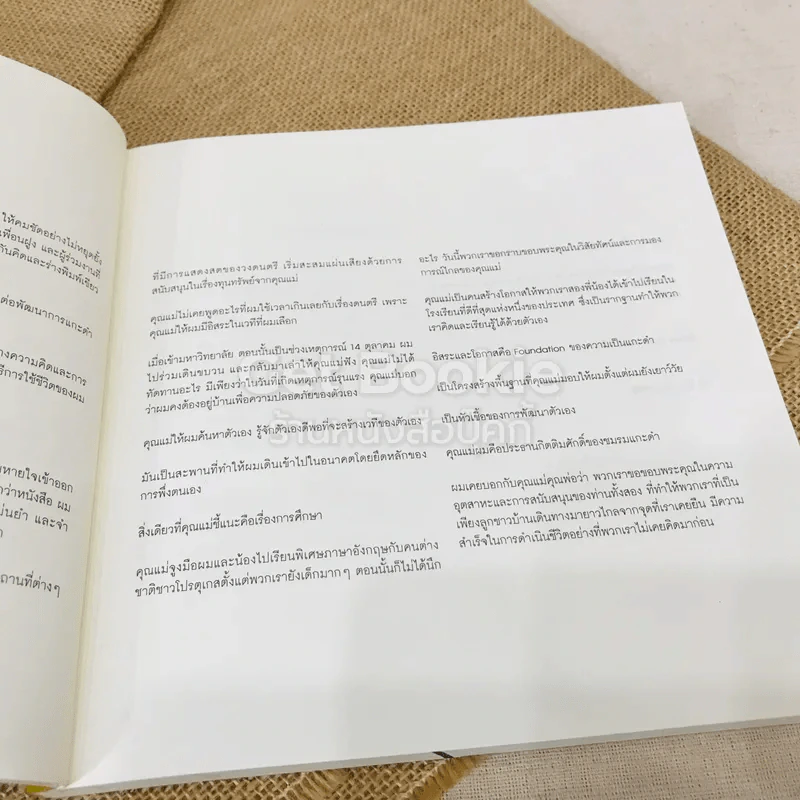 ให้คมชัดอย่างไม่หยุดยั้ง
เพื่อนฝูง และผู้ร่วมงานที่
กันคิดและร่างพิมพ์เขียว
ต่อพัฒนาการแกะดำ
างความคิดและการ
ธีการใช้ชีวิตของผม
มหายใจเข้าออก
กว่าหนังสือ ผม
ม่นยำ และจำ
ถานที่ต่างๆ
ที่มีการแสดงสดของวงดนตรี เริ่มสะสมแผ่นเสียงด้วยการ
สนับสนุนในเรื่องทุนทรัพย์จากคุณแม่
คุณแม่ไม่เคยพูดอะไรที่ผมใช้เวลาเกินเลยกับเรื่องดนตรี เพราะ
คุณแม่ให้ผมมีอิสระในเวทีที่ผมเลือก
เมื่อเข้ามหาวิทยาลัย ตอนนั้นเป็นช่วงเหตุการณ์ 14 ตุลาคม ผม
ไปร่วมเดินขบวน และกลับมาเล่าให้คุณแม่ฟัง คุณแม่ไม่ได้
ทัดทานอะไร มีเพียงว่าในวันที่เกิดเหตุการณ์รุนแรง คุณแม่บอก
ว่าผมคงต้องอยู่บ้านเพื่อความปลอดภัยของตัวเอง
คุณแม่ให้ผมค้นหาตัวเอง รู้จักตัวเองดีพอที่จะสร้างเวทีของตัวเอง
มันเป็นสะพานที่ทำให้ผมเดินเข้าไปในอนาคตโดยยึดหลักของ
การพึ่งตนเอง
สิ่งเดียวที่คุณแม่ชี้แนะคือเรื่องการศึกษา
คุณแม่จูงมือผมและน้องไปเรียนพิเศษภาษาอังกฤษกับคนต่าง
ชาติชาวโปรตุเกสตั้งแต่พวกเรายังเด็กมากๆ ตอนนั้นก็ไม่ได้นึก
อะไร วันนี้พวกเราขอกราบขอบพระคุณในวิสัยทัศน์และการมอง
การณ์ไกลของคุณแม่
คุณแม่เป็นคนสร้างโอกาสให้พวกเราสองพี่น้องได้เข้าไปเรียนใน
โรงเรียนที่ดีที่สุดแห่งหนึ่งของประเทศ ซึ่งเป็นรากฐานทำให้พวก
เราคิดและเรียนรู้ได้ด้วยตัวเอง
อิสระและโอกาสคือ Foundation ของความเป็นแกะดำ
เป็นโครงสร้างพื้นฐานที่คุณแม่มอบให้ผมตั้งแต่ผมยังเยาว์วัย
เป็นหัวเชื้อของการพัฒนาตัวเอง
คุณแม่ผมคือประธานกิตติมศักดิ์ของชมรมแกะดำ
ผมเคยบอกกับคุณแม่คุณพ่อว่า พวกเราขอขอบพระคุณในความ
อุตสาหะและการสนับสนุนของท่านทั้งสอง ที่ทำให้พวกเราที่เป็น
เพียงลูกชาวบ้านเดินทางมายาวไกลจากจุดที่เราเคยยืน มีความ
สำเร็จในการดำเนินชีวิตอย่างที่พวกเราไม่เคยคิดมาก่อน
Get Bookie
ร้านหนังสือบุ๊คกี้